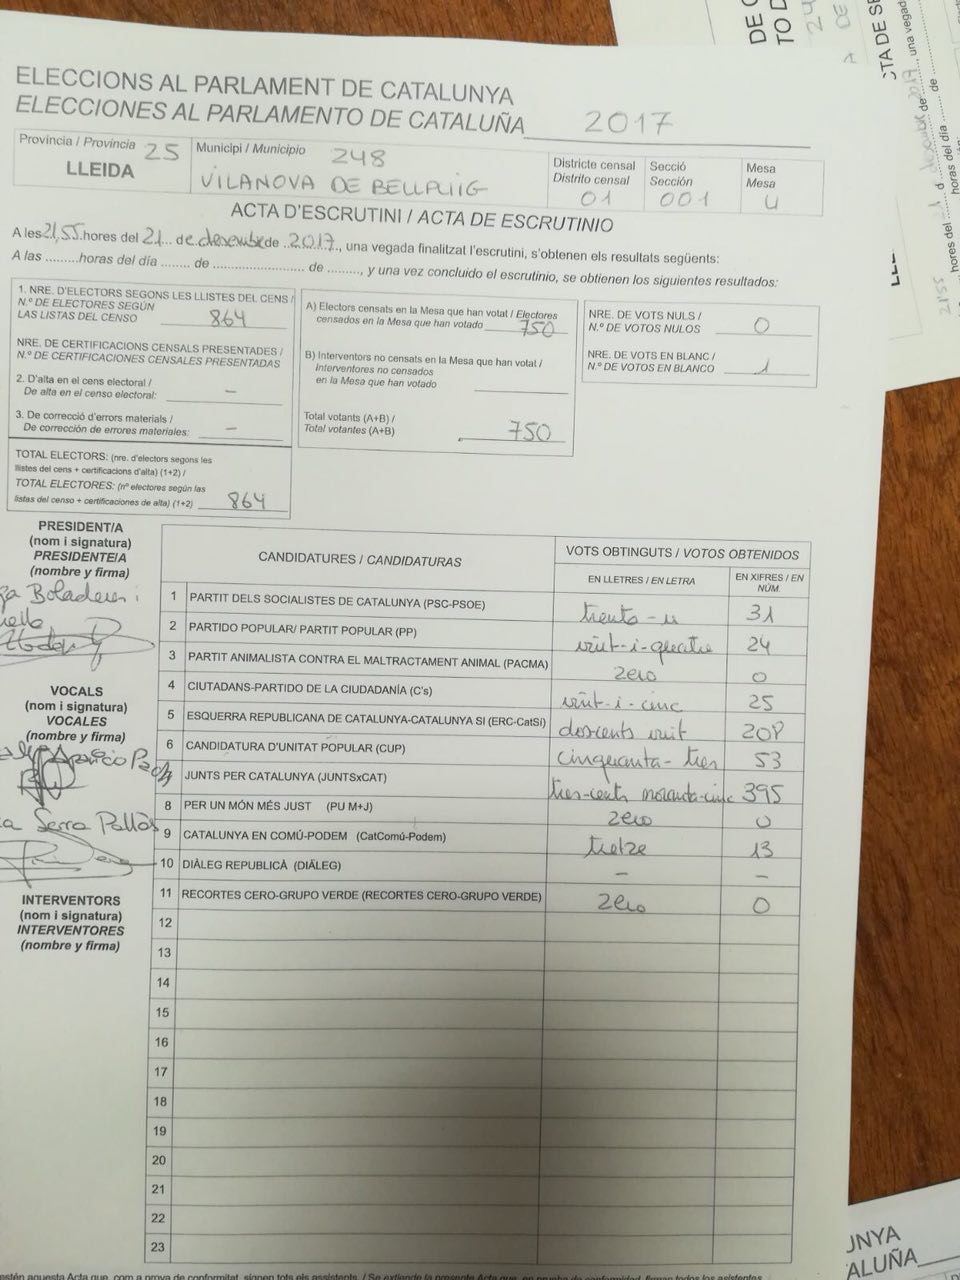 ELECCIONS AL PARLAMENT DE CATALUNYA
ELECCIONES AL PARLAMENTO DE CATALUÑA 2017
Província / Provincia 25
LLEIDA
Municipi / Municipio 248
VILANOVA DE BELLPUIG
Districte censal
Distrito censal
01
Secció
Sección
001
Mesa
Mesa
U
ACTA D'ESCRUTINI / ACTA DE ESCRUTINIO
A les 21,55 hores del 21 de desembre de 2017, una vegada finalitzat l'escrutini, s'obtenen els resultats següents:
A las .........horas del día ........ de ........................ de ........., y una vez concluido el escrutinio, se obtienen los siguientes resultados:
1. NRE. D'ELECTORS SEGONS LES LLISTES DEL CENS /
N.º DE ELECTORES SEGÚN
LAS LISTAS DEL CENSO 864
NRE. DE CERTIFICACIONS CENSALS PRESENTADES /
N.º DE CERTIFICACIONES CENSALES PRESENTADAS
2. D'alta en el cens electoral /
De alta en el censo electoral: –
3. De correcció d'errors materials /
De corrección de errores materiales: –
TOTAL ELECTORS: (nre. d'electors segons les
llistes del cens + certificacions d'alta) (1+2) /
TOTAL ELECTORES: (nº electores según las
listas del censo + certificaciones de alta) (1+2) 864
A) Electors censats en la Mesa que han votat / Electores
censados en la Mesa que han votado 750
B) Interventors no censats en la Mesa que han votat /
Interventores no censados
en la Mesa que han votado
Total votants (A+B) /
Total votantes (A+B) 750
NRE. DE VOTS NULS /
N.º DE VOTOS NULOS 0
NRE. DE VOTS EN BLANC /
N.º DE VOTOS EN BLANCO 1
PRESIDENT/A
(nom i signatura)
PRESIDENTE/A
(nombre y firma)
Boladeres i
VOCALS
(nom i signatura)
VOCALES
(nombre y firma)
Aparicio
Serra Pallàs
INTERVENTORS
(nom i signatura)
INTERVENTORES
(nombre y firma)
CANDIDATURES / CANDIDATURAS
VOTS OBTINGUTS / VOTOS OBTENIDOS
EN LLETRES / EN LETRA
EN XIFRES / EN NÚM.
1 PARTIT DELS SOCIALISTES DE CATALUNYA (PSC-PSOE) trenta-u 31
2 PARTIDO POPULAR/ PARTIT POPULAR (PP) vint-i-quatre 24
3 PARTIT ANIMALISTA CONTRA EL MALTRACTAMENT ANIMAL (PACMA) zero 0
4 CIUTADANS-PARTIDO DE LA CIUDADANÍA (C's) vint-i-cinc 25
5 ESQUERRA REPUBLICANA DE CATALUNYA-CATALUNYA SI (ERC-CatSí) doscents vuit 208
6 CANDIDATURA D'UNITAT POPULAR (CUP) cinquanta-tres 53
7 JUNTS PER CATALUNYA (JUNTSxCAT) tres-cents noranta-cinc 395
8 PER UN MÓN MÉS JUST (PU M+J) zero 0
9 CATALUNYA EN COMÚ-PODEM (CatComú-Podem) tretze 13
10 DIÀLEG REPUBLICÀ (DIÀLEG) – –
11 RECORTES CERO-GRUPO VERDE (RECORTES CERO-GRUPO VERDE) zero 0
12
13
14
15
16
17
18
19
20
21
22
23